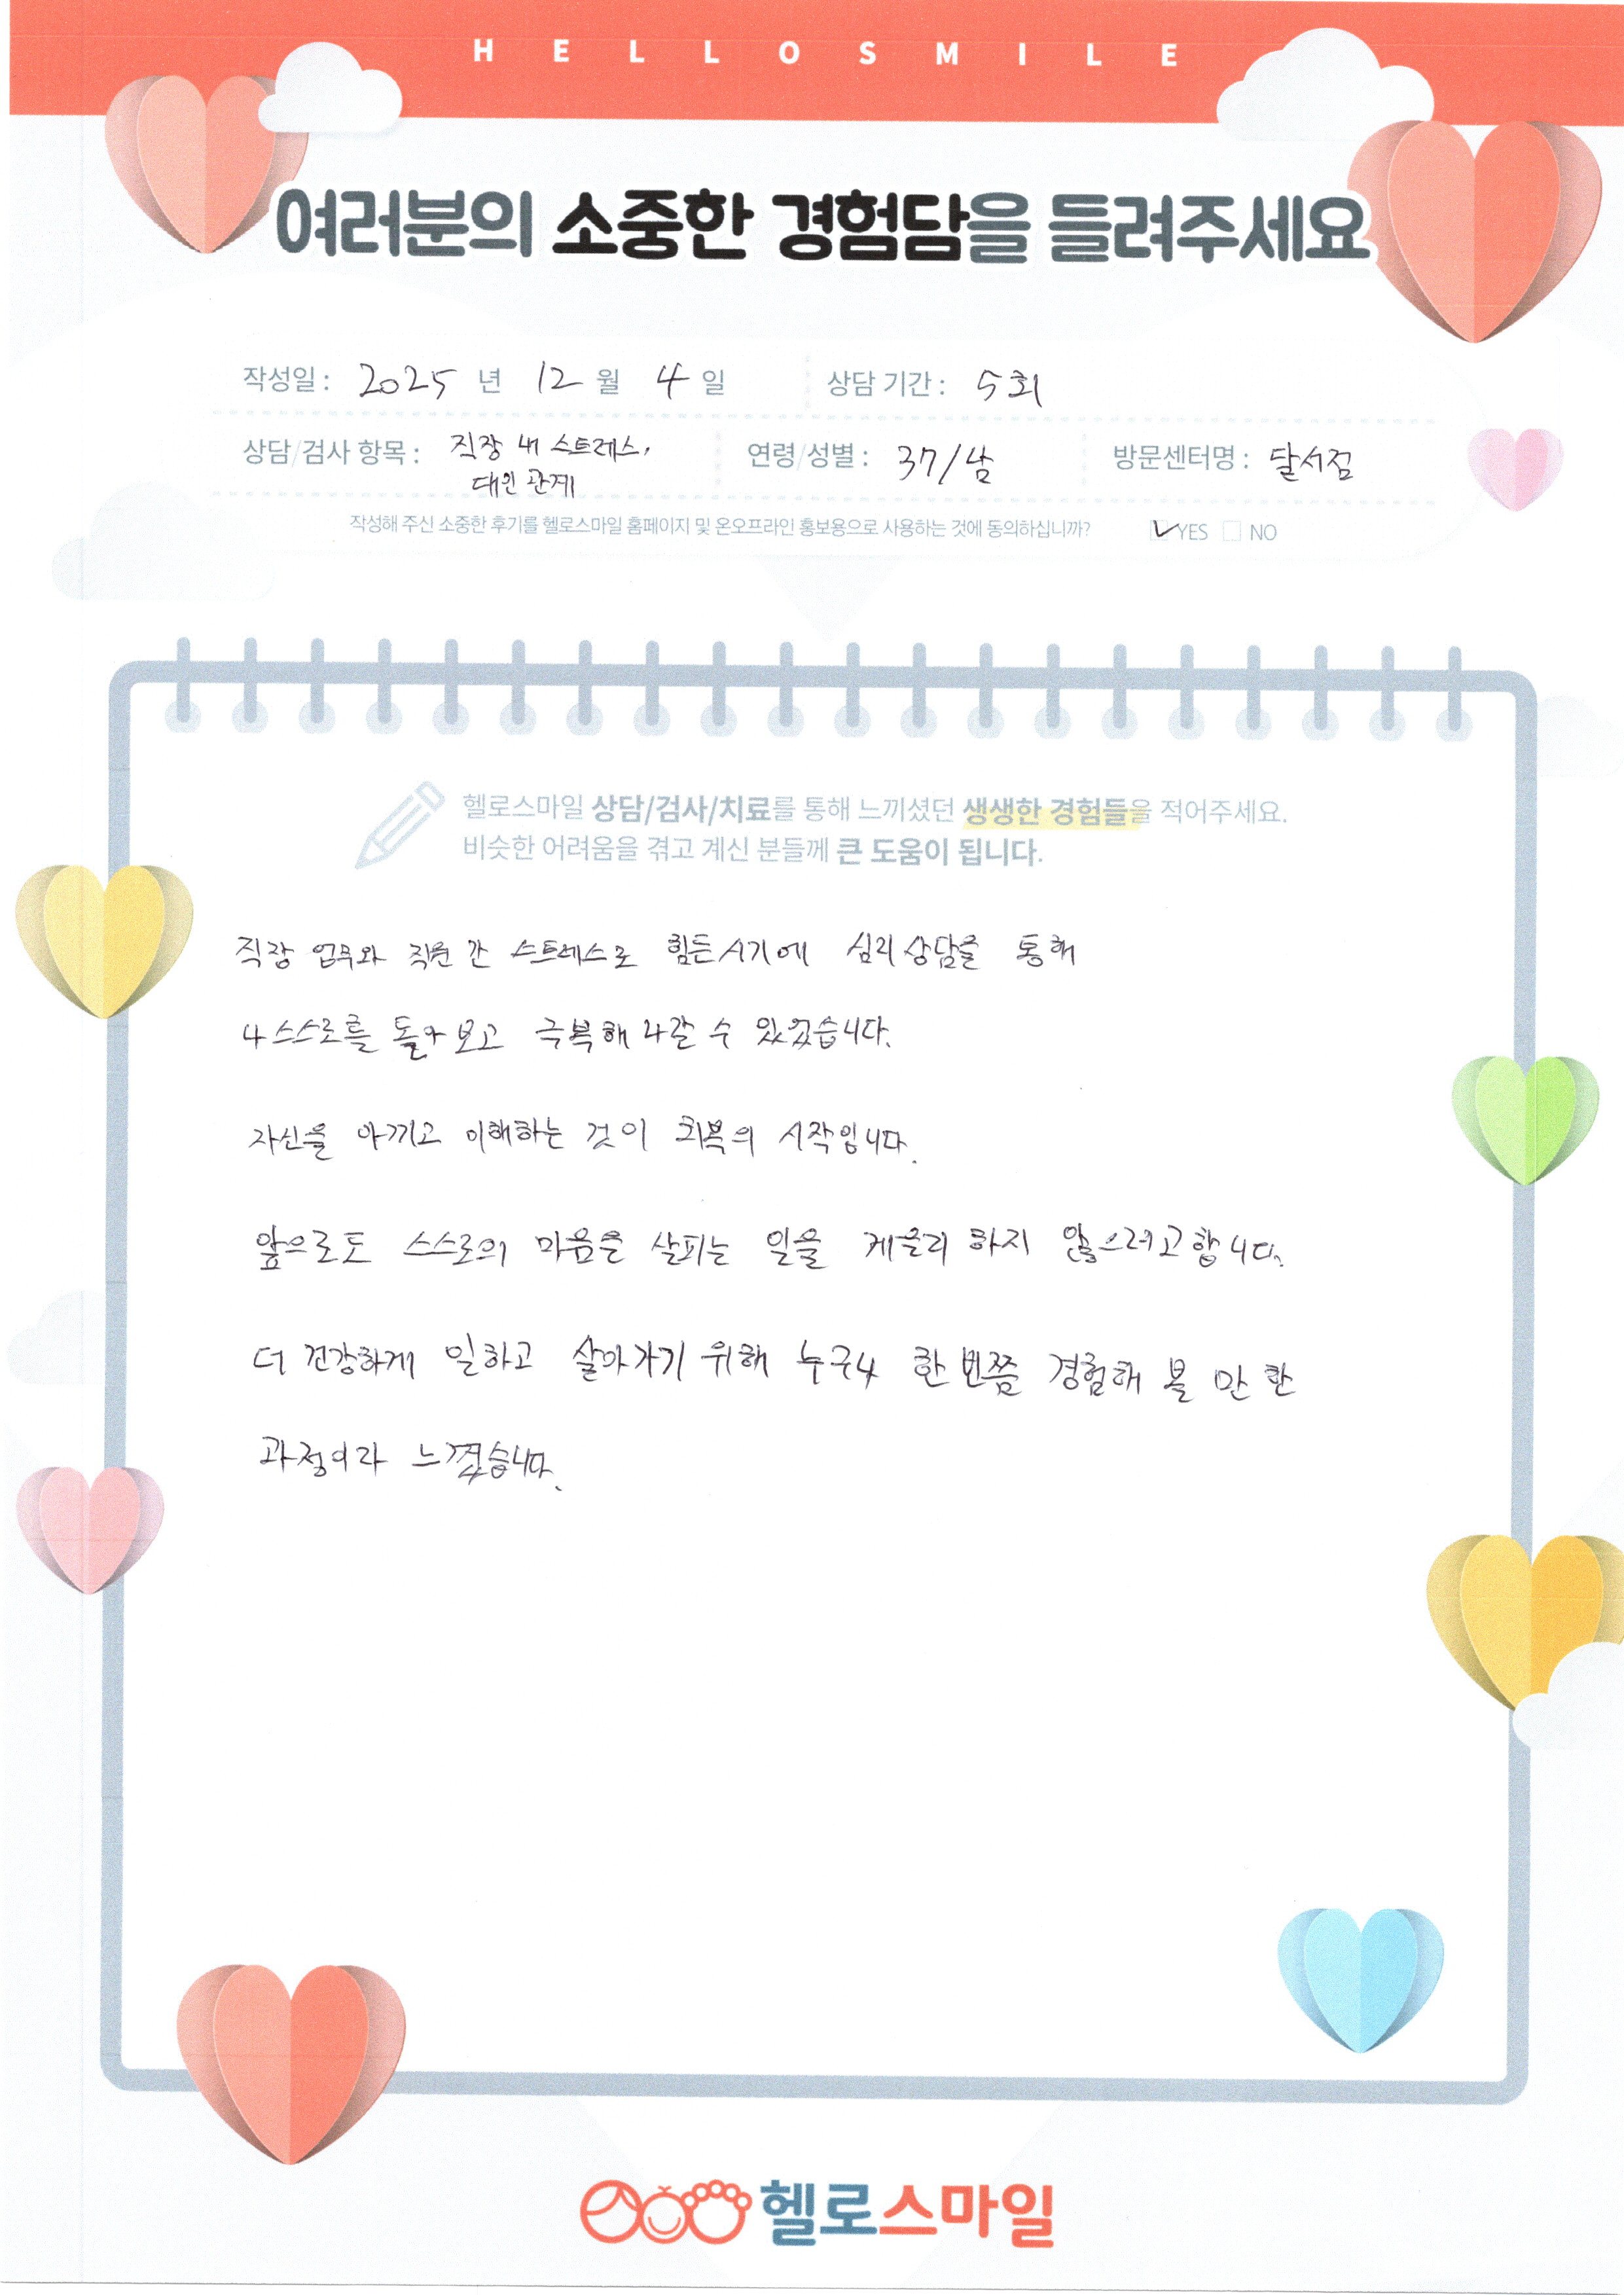 HELLOSMILE
여러분의 소중한 경험담을 들려주세요
작성일 : 2025 년 12 월 4 일 상담 기간 : 5회
상담/검사 항목 : 직장 내 스트레스, 대인 관계 연령/성별 : 37/남 방문센터명 : 달서점
작성해 주신 소중한 후기를 헬로스마일 홈페이지 및 온오프라인 홍보용으로 사용하는 것에 동의하십니까? YES NO
헬로스마일 상담/검사/치료를 통해 느끼셨던 생생한 경험들을 적어주세요.
비슷한 어려움을 겪고 계신 분들께 큰 도움이 됩니다.
직장 업무와 직원 간 스트레스로 힘든시기에 심리상담을 통해
나스스로를 돌아보고 극복해 나갈 수 있었습니다.
자신을 아끼고 이해하는 것이 회복의 시작입니다.
앞으로도 스스로의 마음을 살피는 일을 게을리 하지 않으려고합니다.
더 건강하게 일하고 살아가기 위해 누구나 한번쯤 경험해 볼 만 한
과정이라 느꼈습니다.
헬로스마일